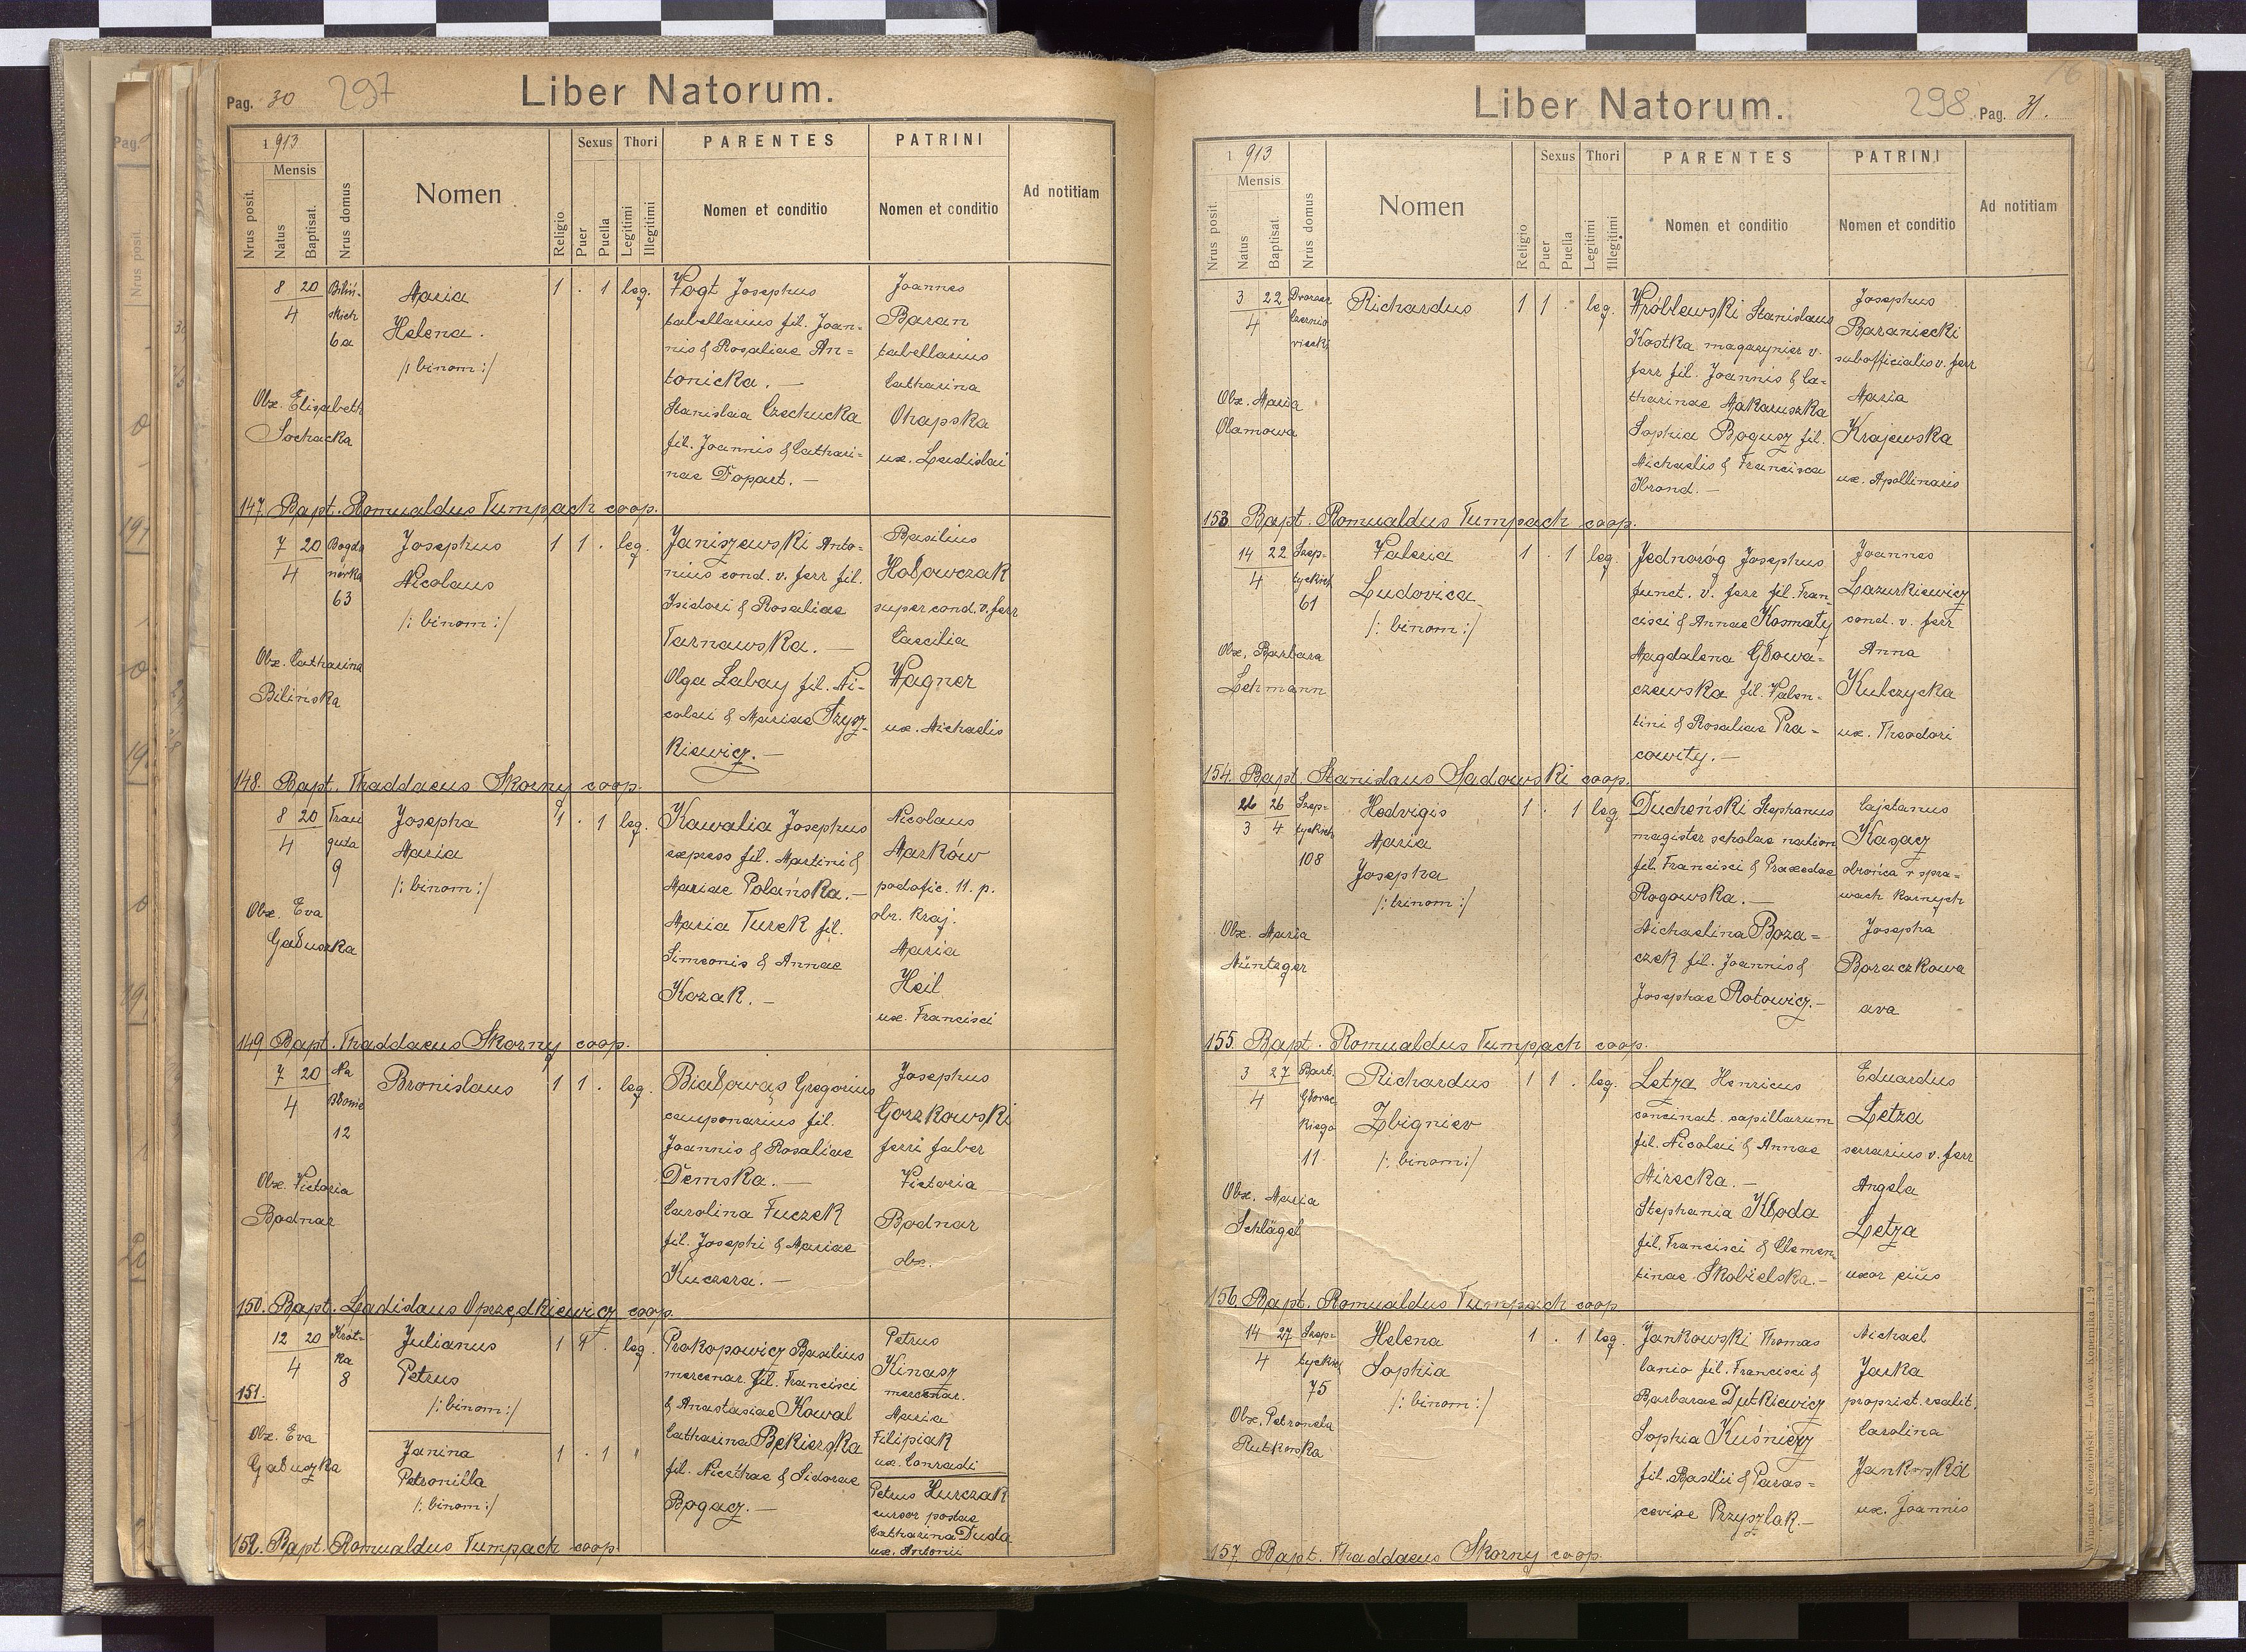 Pag. 30 297 Liber Natorum.
1913 Sexus Thori PARENTES PATRINI
Mensis
Nrus posit. Natus Baptisat. Nrus domus Nomen Religio Puer Puella Legitimi Illegitimi Nomen et conditio Nomen et conditio Ad notitiam
8 20 Biliń-
4 skich
6a
Obx. Elisabeth
Sochacka
Maria
Helena.
/: binom :/
1 . 1 leg.
Vogt Josephus
tabellarius fil. Joan-
nis & Rosaliae An=
tonicka. —
Stanislaa Czechucka
fil. Joannis & Cathari-
nae Dopart. —
Joannes
Baran
tabellarius
Catharina
Chapska
ux. Ladislai
147. Bapt. Romualdus Tumpach coop.
7 20 Bogda
4 nówka
63
Obx. Catharina
Bilińska
Josephus
Nicolaus
/: binom :/
1 1 . leg.
Janiszewski Anto-
nius cond. v. ferr fil.
Isidori & Rosaliae
Tarnawska. —
Olga Labay fil. Ni-
colai & Mariae Tzysz-
kiewicz. —
Basilius
Hołowczak
super cond. v. ferr
Caecilia
Wagner
ux. Michaelis
148. Bapt. Thaddaeus Skorny coop.
8 20 Trau
4 guta
9
Obx. Eva
Gałuszka
Josepha
Maria
/: binom :/
1 . 1 leg.
Kawalia Josephus
express fil. Martini &
Mariae Polańska. —
Maria Turek fil.
Simeonis & Annae
Kozak. —
Nicolaus
Marków
podofic. 11. p.
obr. kraj.
Maria
Heil
ux. Francisci
149 Bapt. Thaddaeus Skorny coop.
7 20 Na
4 Błonie
12
Obx. Victoria
Bodnar
Bronislaus
1 1 . leg.
Białowąs Gregorius
cauponarius fil.
Joannis & Rosaliae
Demska. —
Carolina Fuczek
fil. Josephi & Mariae
Kuczera. —
Josephus
Gorzkowski
ferri faber
Victoria
Bodnar
obx.
150. Bapt. Ladislaus Oprzędkiewicz coop.
12 20 Krót-
4 ka
8
151.
Obx. Eva
Gałuszka
Julianus
Petrus
/: binom :/
1 1 . leg.
Janina
Petronilla
/: binom :/
1 . 1 "
Prokopowicz Basilius
mercenar. fil. Francisci
& Anastasiae Kowal
Catharina Bekierska
fil. Nicetae & Sidorae
Bogacz. —
Petrus
Kinasz
mercenar.
Maria
Filipiak
ux. Conradi
Petrus Kurczak
cursor postae
Catharina Duda
ux. Antonii
152. Bapt. Romualdus Tumpach coop.
Liber Natorum. 298 Pag. 31.
1913 Sexus Thori PARENTES PATRINI
Mensis
Nrus posit. Natus Baptisat. Nrus domus Nomen Religio Puer Puella Legitimi Illegitimi Nomen et conditio Nomen et conditio Ad notitiam
3 22 Dworzec
4 czernio
wiecki
Obx. Maria
Olamowa
Richardus
1 1 . leg.
Wróblewski Stanislaus
Kostka magazynier v.
ferr fil. Joannis & Ca-
tharinae Makaruszka
Sophia Bogusz fil.
Michaelis & Francisca
Hrond. —
Josephus
Baraniecki
subofficialis v. ferr
Maria
Krajewska
ux. Apollinaris
153 Bapt. Romualdus Tumpach coop.
14 22 Szep-
4 tyckich
61
Obx. Barbara
Lehmann
Valeria
Ludovica
/: binom :/
1 . 1 leg.
Jednoróg Josephus
funct. v. ferr fil. Fran-
cisci & Annae Kosmaty
Magdalena Głowa-
czewska fil. Valen-
tini & Rosaliae Pra-
cowity. —
Joannes
Lazurkiewicz
cond. v. ferr
Anna
Kulczycka
ux. Theodori
154. Bapt. Stanislaus Sadowski coop.
26 26 Szep-
3 4 tyckich
108
Obx. Maria
Müntzger
Hedvigis
Maria
Josepha
/: trinom :/
1 . 1 leg.
Ducheński Stephanus
magister scholae nation
fil. Francisci & Praxedae
Rogowska. —
Michaelina Boza-
czek fil. Joannis &
Josephae Rotowicz. —
Cajetanus
Kasacz
obrońca w spra-
wach karnych
Josepha
Boraczkowa
ava
155. Bapt. Romualdus Tumpach coop.
3 27 Bart.
4 Głowac
kiego
11
Obx. Maria
Schlägel
Richardus
Zbigniev
/: binom :/
1 1 . leg.
Letza Henricus
concinat. capillarum
fil. Nicolai & Annae
Mirecka. —
Stephania Kłoda
fil. Francisci & Clemen
tinae Skobielska. —
Eduardus
Letza
serrarius v. ferr
Angela
Letza
uxor eius
156. Bapt. Romualdus Tumpach coop
14 27 Szep-
4 tyckich
75
Obx. Petronela
Rutkowska
Helena
Sophia
/: binom :/
1 . 1 leg.
Jankowski Thomas
lanio fil. Francisci &
Barbarae Dutkiewicz
Sophia Kuśnierz
fil. Basilii & Paras-
ceviae Przyszlak. —
Michael
Jaska
propriet. realit.
Carolina
Jankowska
ux. Joannis
157. Bapt. Thaddaeus Skorny coop.